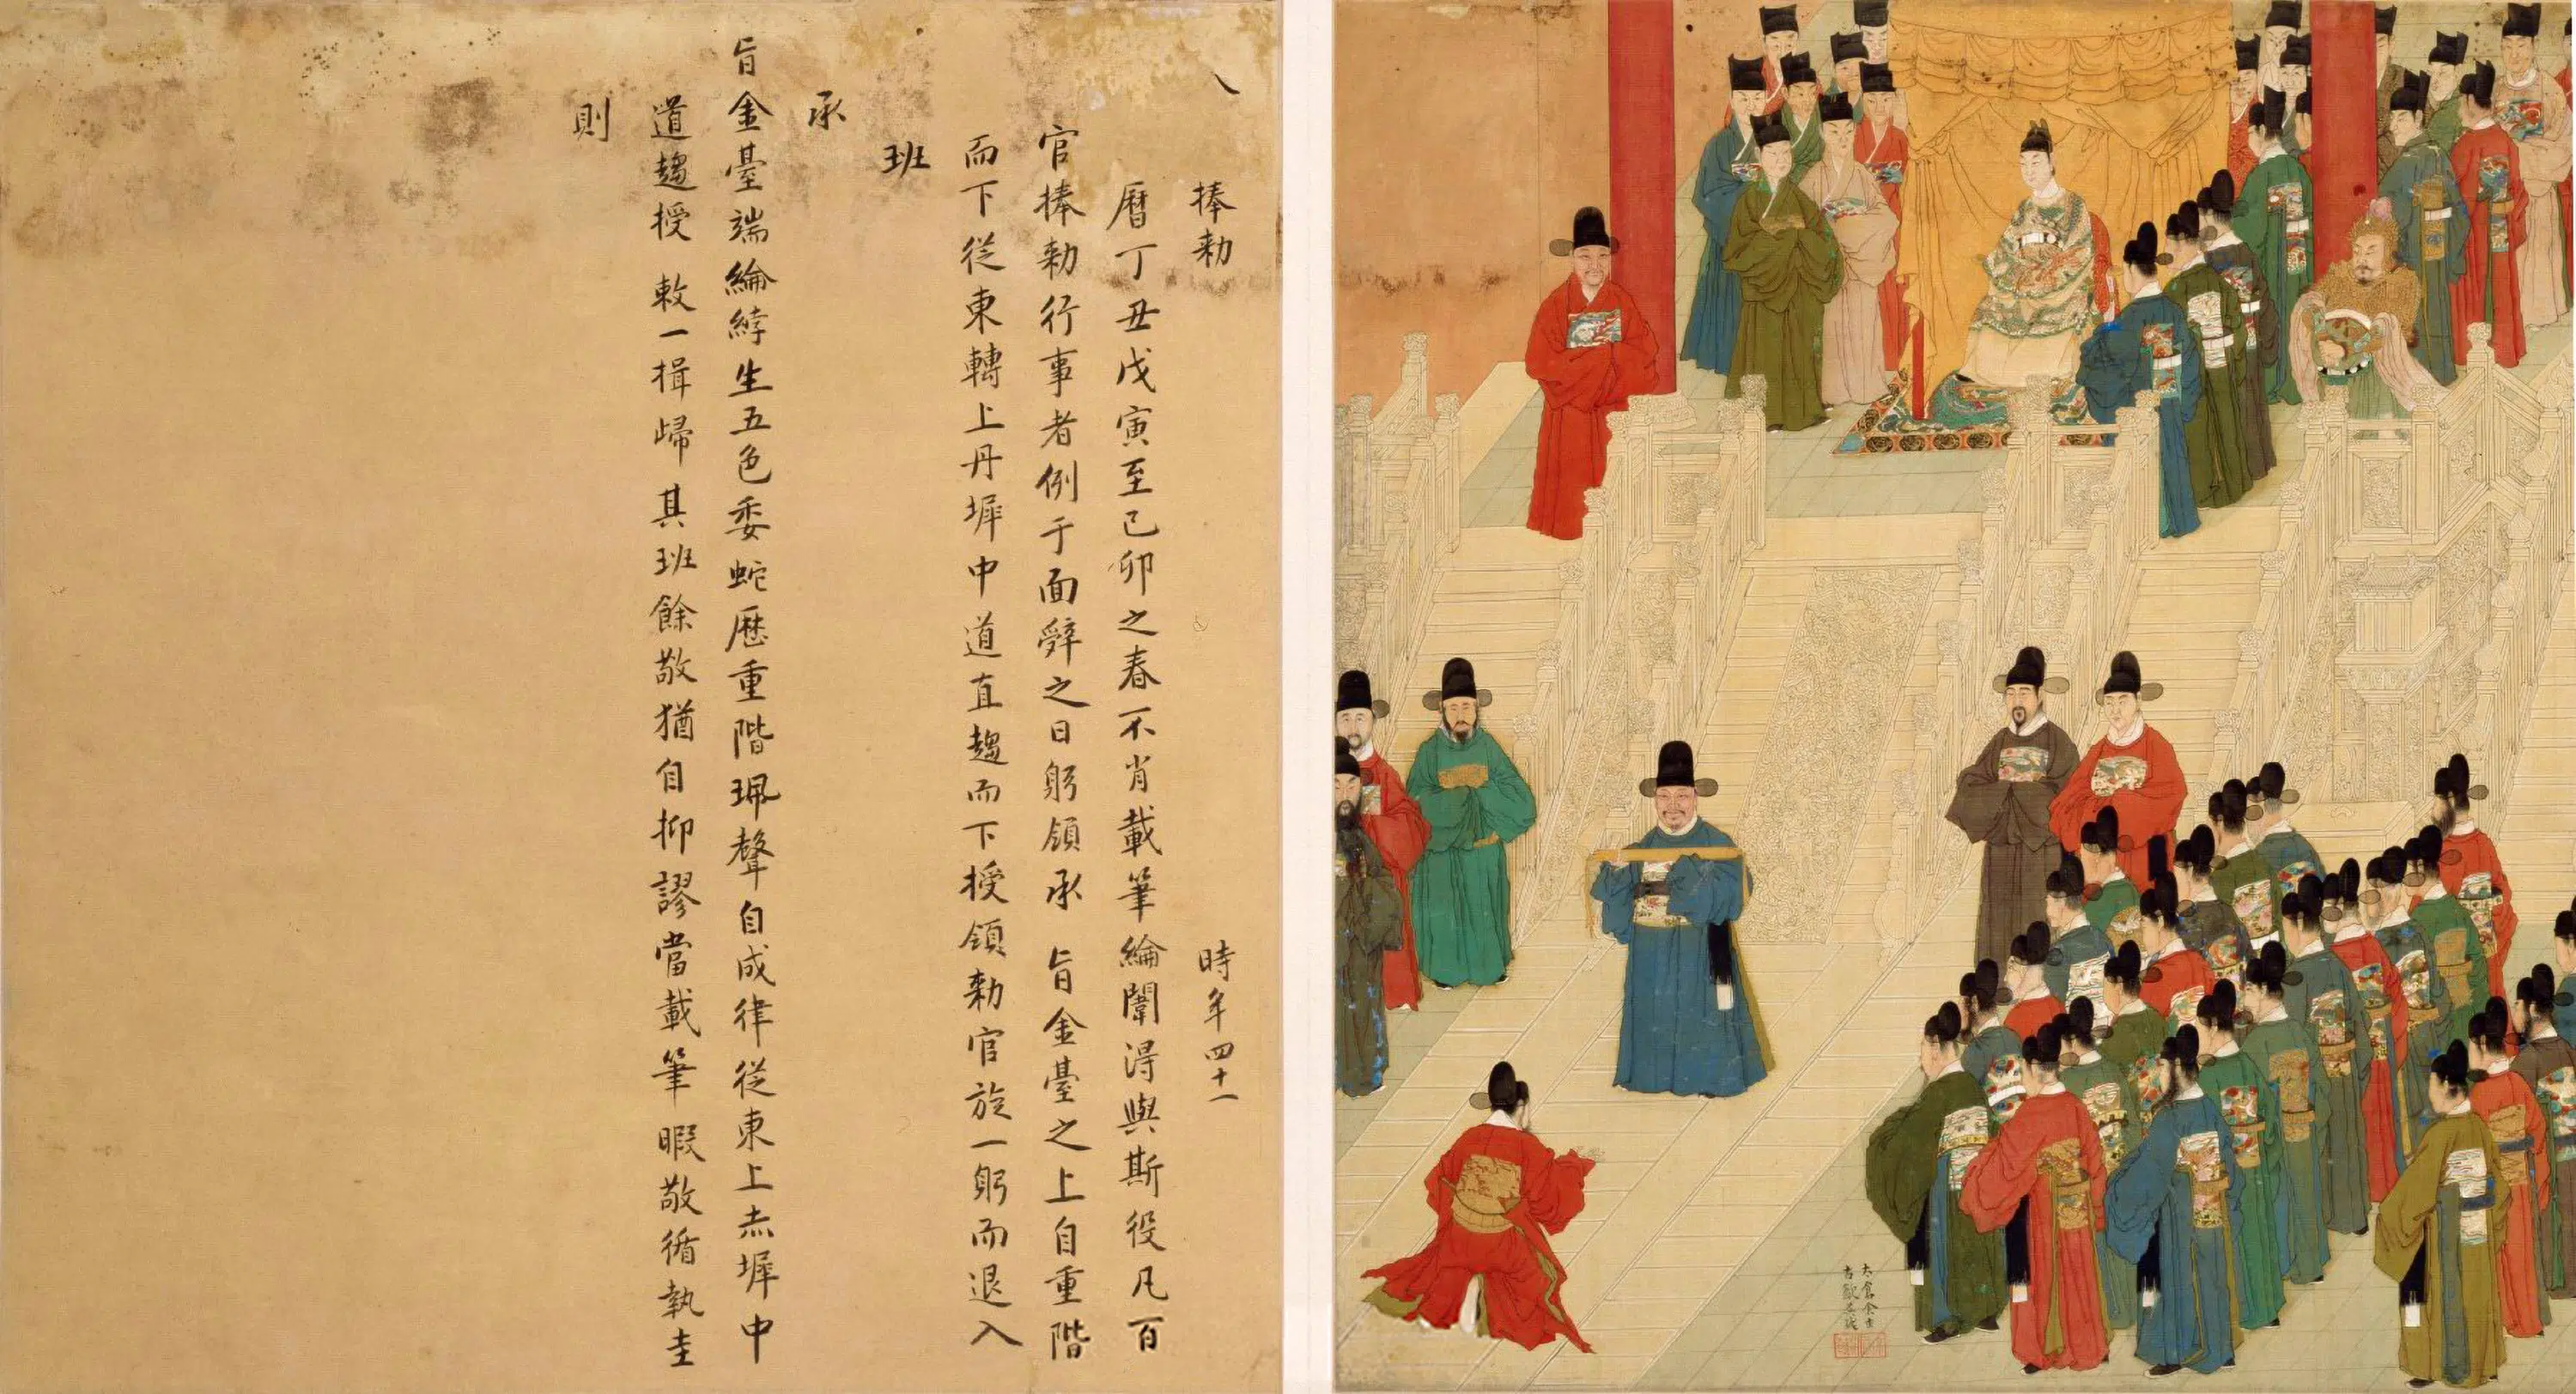 捧勑 時年四十一
曆丁丑戊寅至己卯之春不肖載筆綸闈淂與斯役凡百
官捧勑行事者例于面辤之日躬領承 旨金臺之上自重階
而下從東轉上丹墀中道直趨而下授領勑官旋一躬而退入
班
承
旨金臺端綸綍生五色委蛇歷重階珮聲自成律從東上赤墀中
道趨授 敕一揖歸其班餘敬猶自抑謬當載筆暇敬循執圭
則
太倉金
古歙